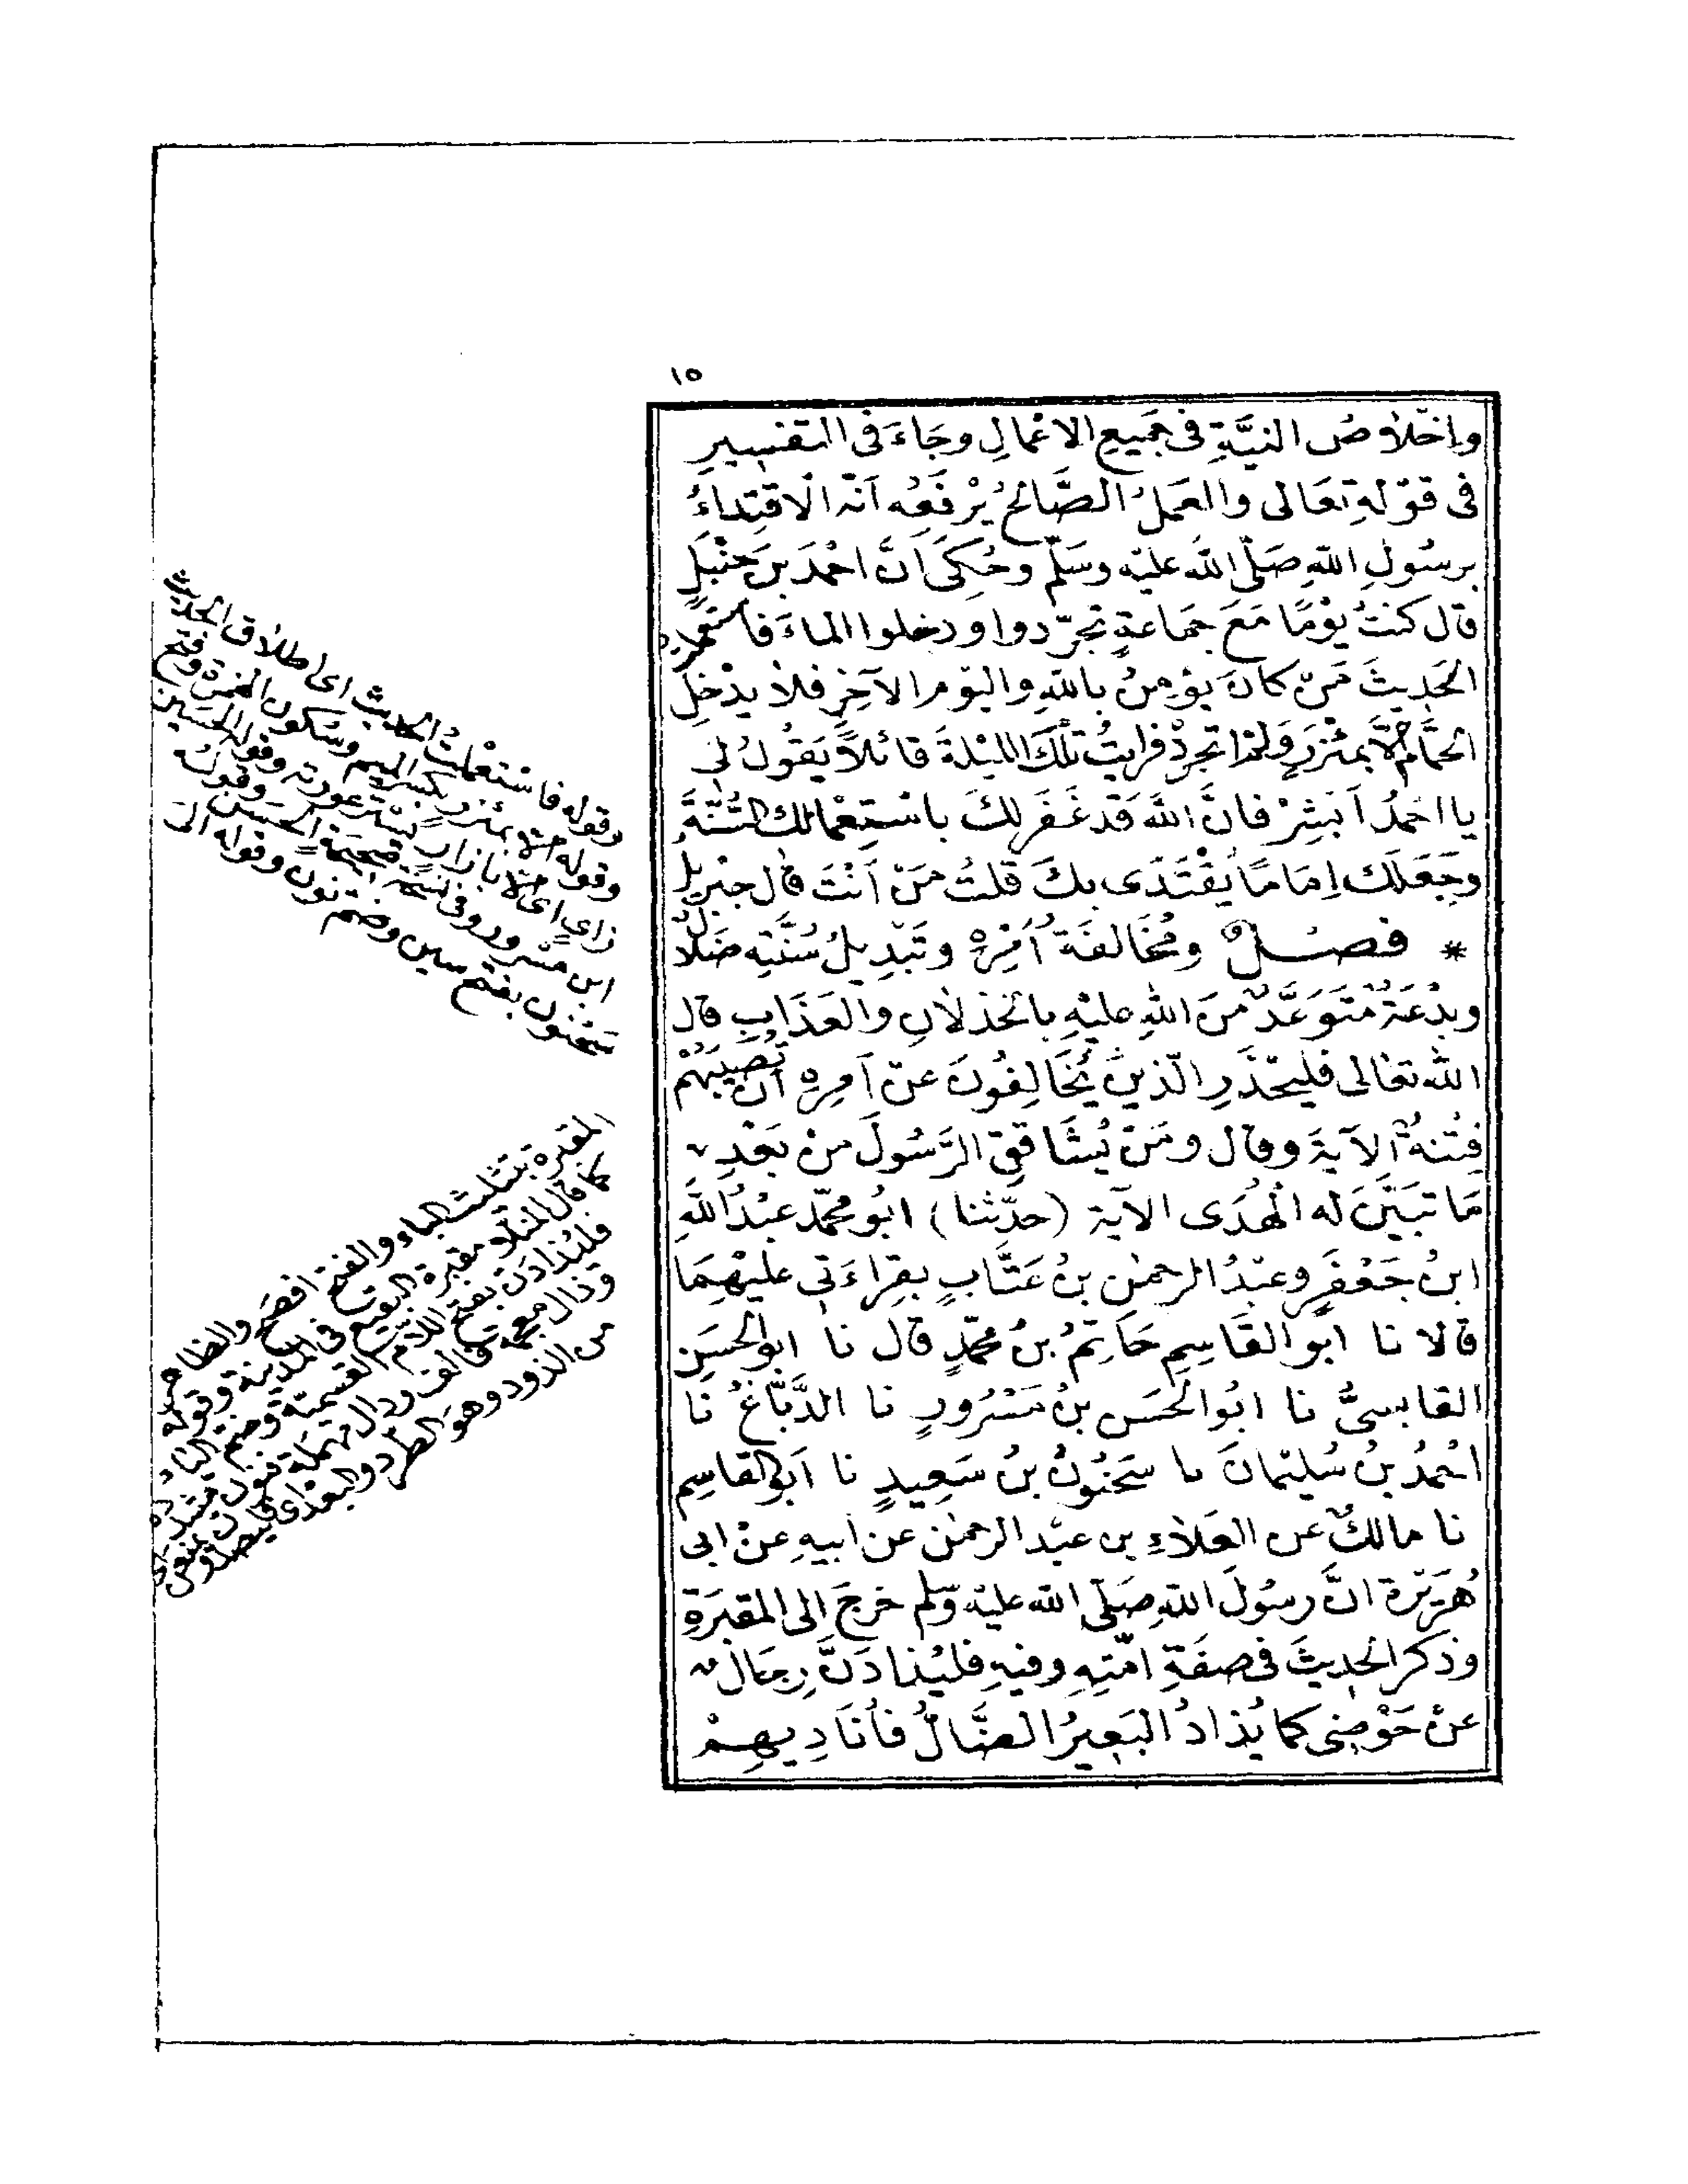 ١٥
وإخلاص النيَّةِ في جَميعِ الاعْمالِ وجَاءَ في التفسيرِ
في قوْلهِ تعَالى والعَمَلُ الصَّالحُ يرْفَعُه اَنّه الاقتِداءُ
برسُولِ اللهِ صَلّى اللهُ عليْه وسَلّم وحُكِىَ اَنَّ احْمَدَ بنَ حَنْبَلٍ
قال كنتُ يوْمًا مَعَ جَماعةٍ تجرّدوا ودخلوا الماءَ فاستعملتُ
الحَديثَ مَنْ كانَ يؤمِنُ باللهِ واليوْمِ الآخِرِ فلا يدْخلِ
الحَمَّامَ إلاَّ بمئْزرٍ ولمْ اتجرّدْ فرايتُ تلكَ الليْلةَ قائلاً يَقُولُ لي
يا احْمَدُ اَبْشِرْ فانَّ اللهَ قد غَفَرَ لكَ باسْتِعْمالك السُّنَّةَ
وجَعَلَك اِمَامًا يُقْتَدَى بكَ قلتُ مَنْ اَنْتَ قال جبْريلُ
* فصْلٌ ومُخَالفَةُ اَمْرِه وتَبْدِيلُ سُنَّتِه ضَلالٌ
وبدْعَةٌ مُتَوَعَّدٌ مِنَ اللهِ عليْهِ بالخذلانِ والعَذَابِ قال
اللهُ تعالى فليحْذَرِ الّذينَ يُخَالِفُونَ عنْ اَمرِه اَنْ تُصِيبَهُمْ
فِتْنةٌ الآيَةَ وقال ومَنْ يُشَاقِقِ الرَّسُولَ منْ بَعْدِ
مَا تبَيَّنَ له الْهُدَى الآيةَ (حدّثنا) ابُو محمّد عبْدُ اللهِ
ابنُ جَعْفَرٍ وعبْدُ الرحمٰن بنُ عَتَّابٍ بقِراءَتي عليْهِمَا
قالا نا ابُو القَاسِمِ حَاتِمُ بنُ محمّدٍ قال نا ابو الحَسَنِ
القابسىُّ نا ابُو الحَسَن بنُ مَسْرُورٍ نا الدَّبَّاغُ نا
احْمَدُ بنُ سُليْمانَ نا سَحْنُونُ بنُ سَعِيدٍ نا ابو القاسِم
نا مالكٌ عن العَلاءِ بن عبْد الرحمٰن عن ابيهِ عنْ ابى
هُرَيْرةَ انَّ رسُولَ اللهِ صَلّى الله عليْه وَسلم خرجَ الى المقبَرَةِ
وذكر الحديثَ في صفَةِ امّتِه وفيهِ فليُذادَنَّ رِجَالٌ
عنْ حَوْضِى كما يُذادُ البَعِيرُ الضَّالُّ فأُنَادِيهِمْ
وقوله فاستعْملتُ الحديث اى اطلاق الحديث
وقوله الا بمئزر بكسر الميم وسكون الهمزة وفتح
زاى اى الا بازار يستر عورته وقوله الحسين
ابن مسرور وفى نسخة صحيحة الحسن وقوله
سحنون بفتح سين وضم نون وقوله الى
المقبرة بتثليث الباء والفتح افصح والظاهر
كما قال المنلا مقبرة البقيع فى المدينة وقوله
فليذادن بفتح اللام القسمية وضم الياء
وذال معجمة فالف ودال مهملة فنون مشددة
من الذود وهو الطرد والبعد اى فليصدن